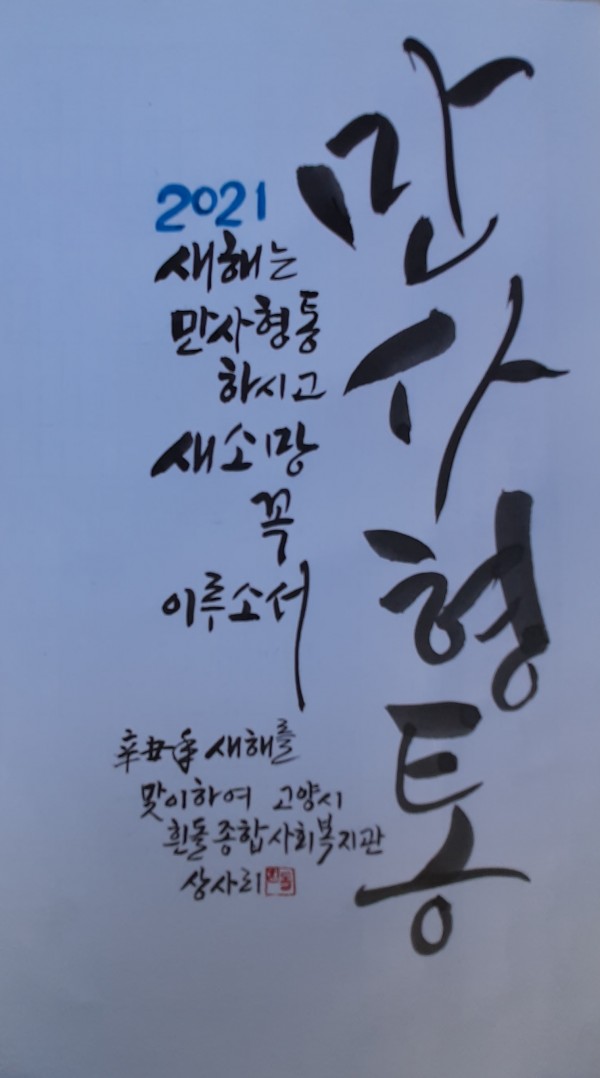 만사형통
2021
새해는
만사형통
하시고
새소망
꼭
이루소서
辛丑年 새해를
맞이하여 고양시
흰돌종합사회복지관
상사리